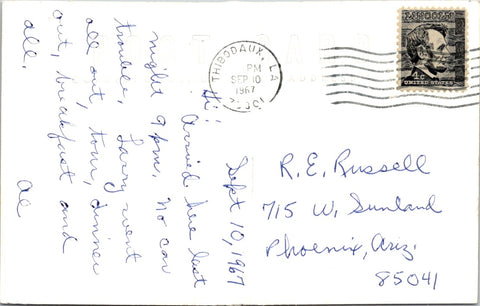 THIBODAUX, LA
PM
SEP 10
1967
LINCOLN
4c
Sept 10, 1967
Hi!
Arrived here last
night 9 pm. No car
trouble. Larry went
all out, tour, dinner
out, breakfast and
all.
Al
R. E. Russell
715 W. Sunland
Phoenix, Ariz.
85041